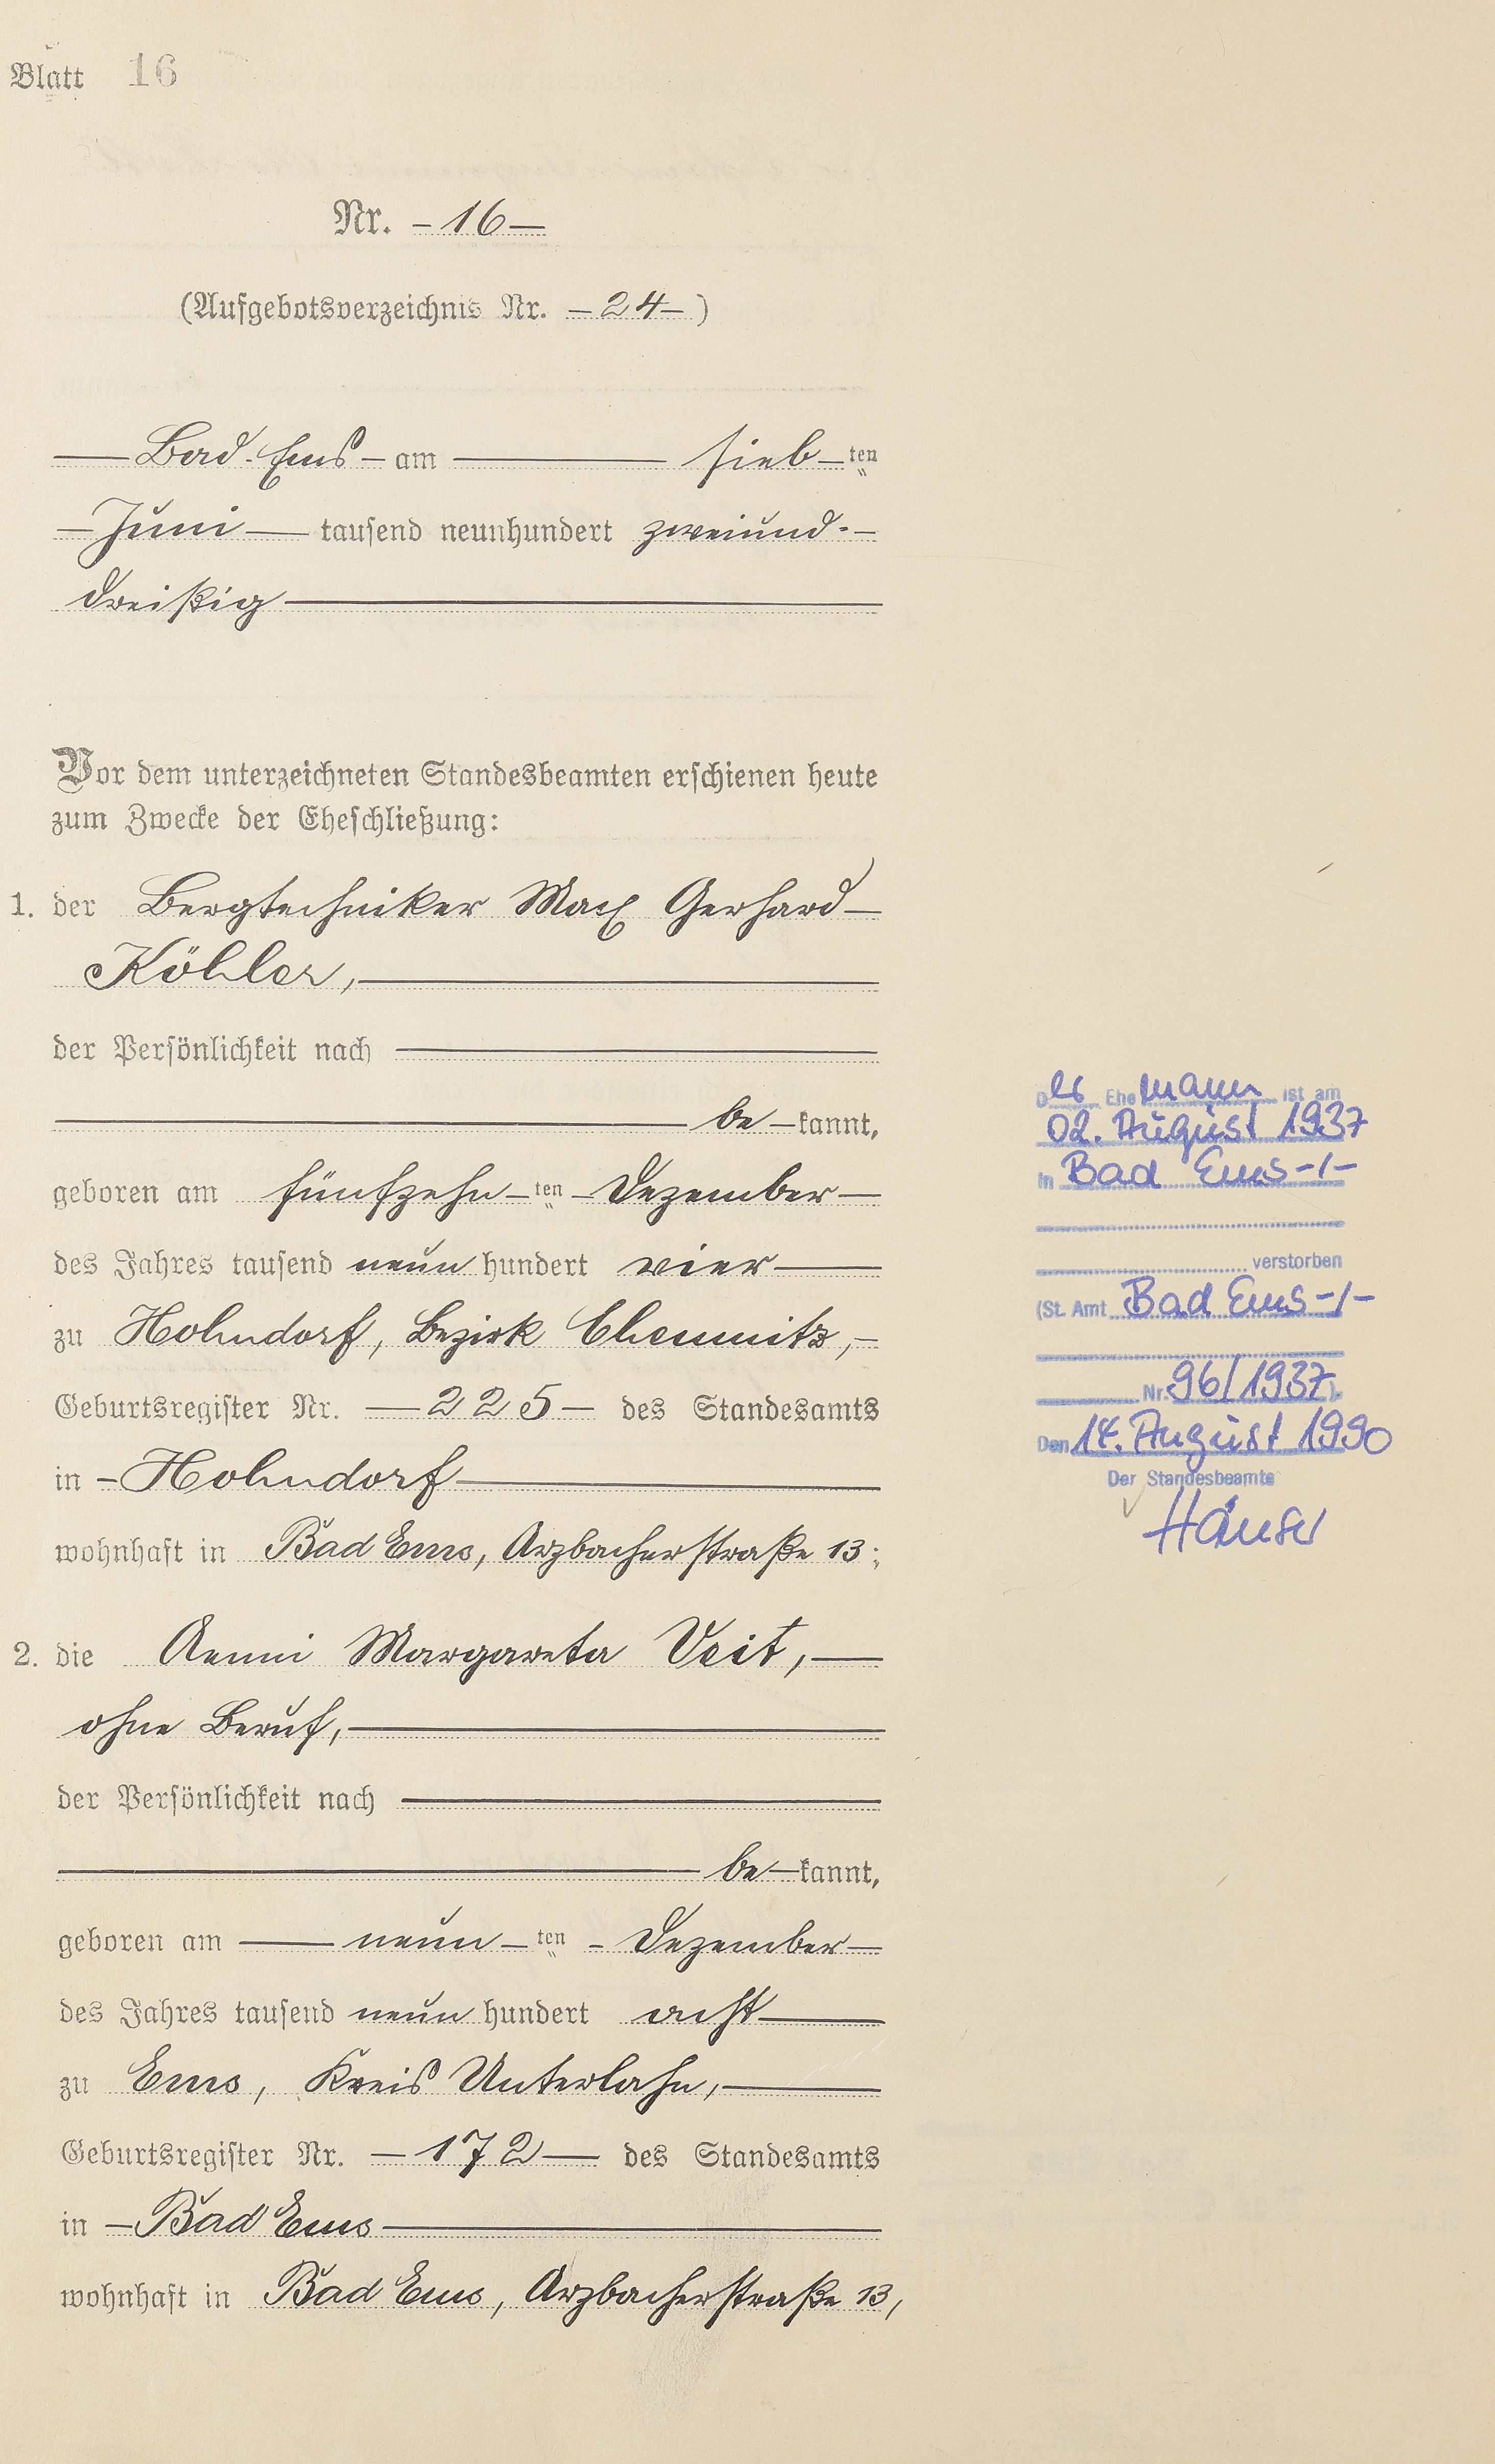 Blatt 16
Nr. – 16 –
(Aufgebotsverzeichnis Nr. – 24 – )
Bad Ems – am sieb – ten
Juni tausend neunhundert zweiund-
dreißig
Vor dem unterzeichneten Standesbeamten erschienen heute
zum Zwecke der Eheschließung:
1. der Bergtechniker Max Gerhard
Köhler,
der Persönlichkeit nach
be kannt,
geboren am fünfzehn ten Dezember
des Jahres tausend neun hundert vier
zu Hohndorf, Bezirk Chemnitz,
Geburtsregister Nr. 225 des Standesamts
in Hohndorf
wohnhaft in Bad Ems, Arzbacherstraße 13;
2. die Aenni Margareta Veit,
ohne Beruf,
der Persönlichkeit nach
be kannt,
geboren am neun ten Dezember
des Jahres tausend neun hundert acht
zu Ems, Kreis Unterlahn,
Geburtsregister Nr. 172 des Standesamts
in Bad Ems
wohnhaft in Bad Ems, Arzbacherstraße 13,
Der Ehemann ist am
02. August 1937
in Bad Ems -/-
verstorben
(St. Amt Bad Ems -/-
Nr. 96/1937).
Den 14. August 1990
Der Standesbeamte
Häuser